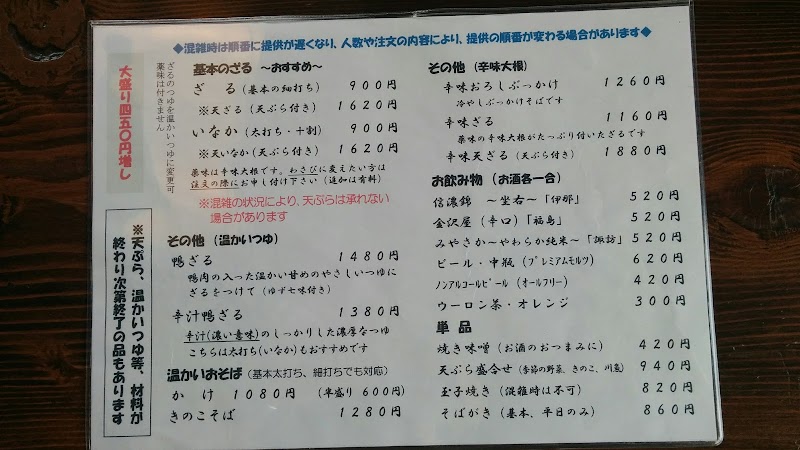 ◆混雑時は順番に提供が遅くなり、人数や注文の内容により、提供の順番が変わる場合があります◆
大盛り四五〇円増し
ざるのつゆを温かいつゆに変更可
薬味は付きません
基本のざる ～おすすめ～
ざる(基本の細打ち) 900円
※天ざる(天ぷら付き) 1620円
いなか(太打ち・十割) 900円
※天いなか(天ぷら付き) 1620円
薬味は辛味大根です。わさびに変えたい方は
注文の際にお申し付け下さい(追加は有料)
※混雑の状況により、天ぷらは承れない
場合があります
その他(温かいつゆ)
鴨ざる 1480円
鴨肉の入った温かい甘めのやさしいつゆに
ざるをつけて(ゆず七味付き)
辛汁鴨ざる 1380円
辛汁(濃い意味)のしっかりした濃厚なつゆ
こちらは太打ち(いなか)もおすすめです
温かいおそば(基本太打ち、細打ちでも対応)
かけ 1080円 (半盛り 600円)
きのこそば 1280円
※天ぷら、温かいつゆ等、材料が
終わり次第終了の品もあります
その他(辛味大根)
辛味おろしぶっかけ 1260円
冷やしぶっかけそばです
辛味ざる 1160円
薬味の辛味大根がたっぷり付いたざるです
辛味天ざる(天ぷら付き) 1880円
お飲み物(お酒各一合)
信濃錦 ～坐右～「伊那」 520円
金沢屋(辛口)「福島」 520円
みやさか～やわらか純米～「諏訪」 520円
ビール・中瓶(プレミアムモルツ) 620円
ノンアルコールビール(オールフリー) 420円
ウーロン茶・オレンジ 300円
単品
焼き味噌(お酒のおつまみに) 420円
天ぷら盛合せ(季節の野菜、きのこ、川魚) 940円
玉子焼き(混雑時は不可) 820円
そばがき(基本、平日のみ) 860円